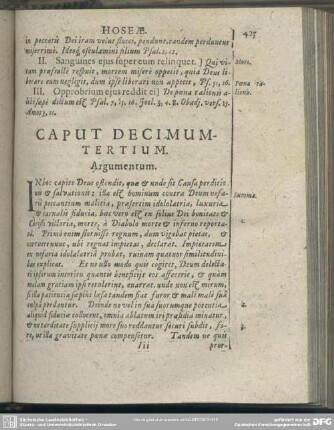 HOSEÆ.
425
in peccatis Dei iram velut fluxos, pendunt, tandem perduntur
miserrimi. Ideoq́; osculamini filium Psal. 2. 12.
II. Sanguines ejus super eum relinquet. ] Qui vi-
Mors.
tam præstulle respuit, mortem miserè oppetit, quia Deus libe-
rare eum negligit, dum ipse liberari non appetit, Ps. 51, 16.
III. Opprobrium ejus reddit ei ] De pœna talionis a-
Pœna ta-
lionis.
Psal. 7, 15, 16. Joel. 3, 4. 8. Obadj. vers. 15.
Amos 3, 11.
CAPUT DECIMUM-
TERTIUM.
Argumentum.
IN hoc capite Deus ostendit, quæ & unde sit Causa perditio-
nis & salvationis: illa est hominum contra Deum nefa-
rii peccantium malitia, præsertim idololatria, luxuria
Summa.
& carnalis fiducia, hæc vero est in filius Dei bonitate &
Christi victoria, mores, à Diabolo morte & inferno reporta-
ti. Primò enim florüisse regnum, dum vigebat pietas, &
1.
corruentuisse, ubi regnat impietas, declarat. Impietatem
ex nefaria idololatria probat, ruinam quatuor similitudini-
bus explicat. Et ne ullo modo quis cogitet, Deum delecta-
2.
ri ipsorum interitu quantis beneficiis eos affecerit, & quàm
malam gratiam ipsi retulerint, enarrat, unde non est mirum,
si illa patientia sæpius læsa tandem fiat furor & mali malè suâ
culpâ perdantur. Deinde ne vel in sua suorumque potentia
3.
aliquid fiduciæ collocent, omnia ablatum iri præsidia minatur,
& ne tarditate supplicij more suo reddantur securi subdit, fo-
4.
re, ut illa gravitate pœnæ compensetur. Tandem ne quit
Iii
pror-